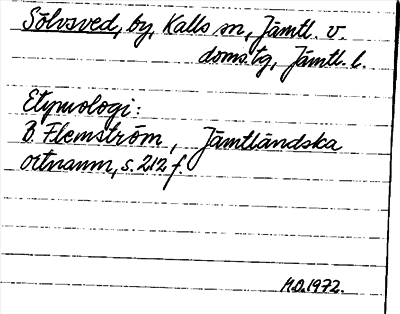 Sölvsved, by, Kalls sn, Jämtl. v.
doms.tg, Jämtl. l.
Etymologi:
B. Flemström, Jämtländska
ortnamn, s. 212 f.
M.O. 1972.